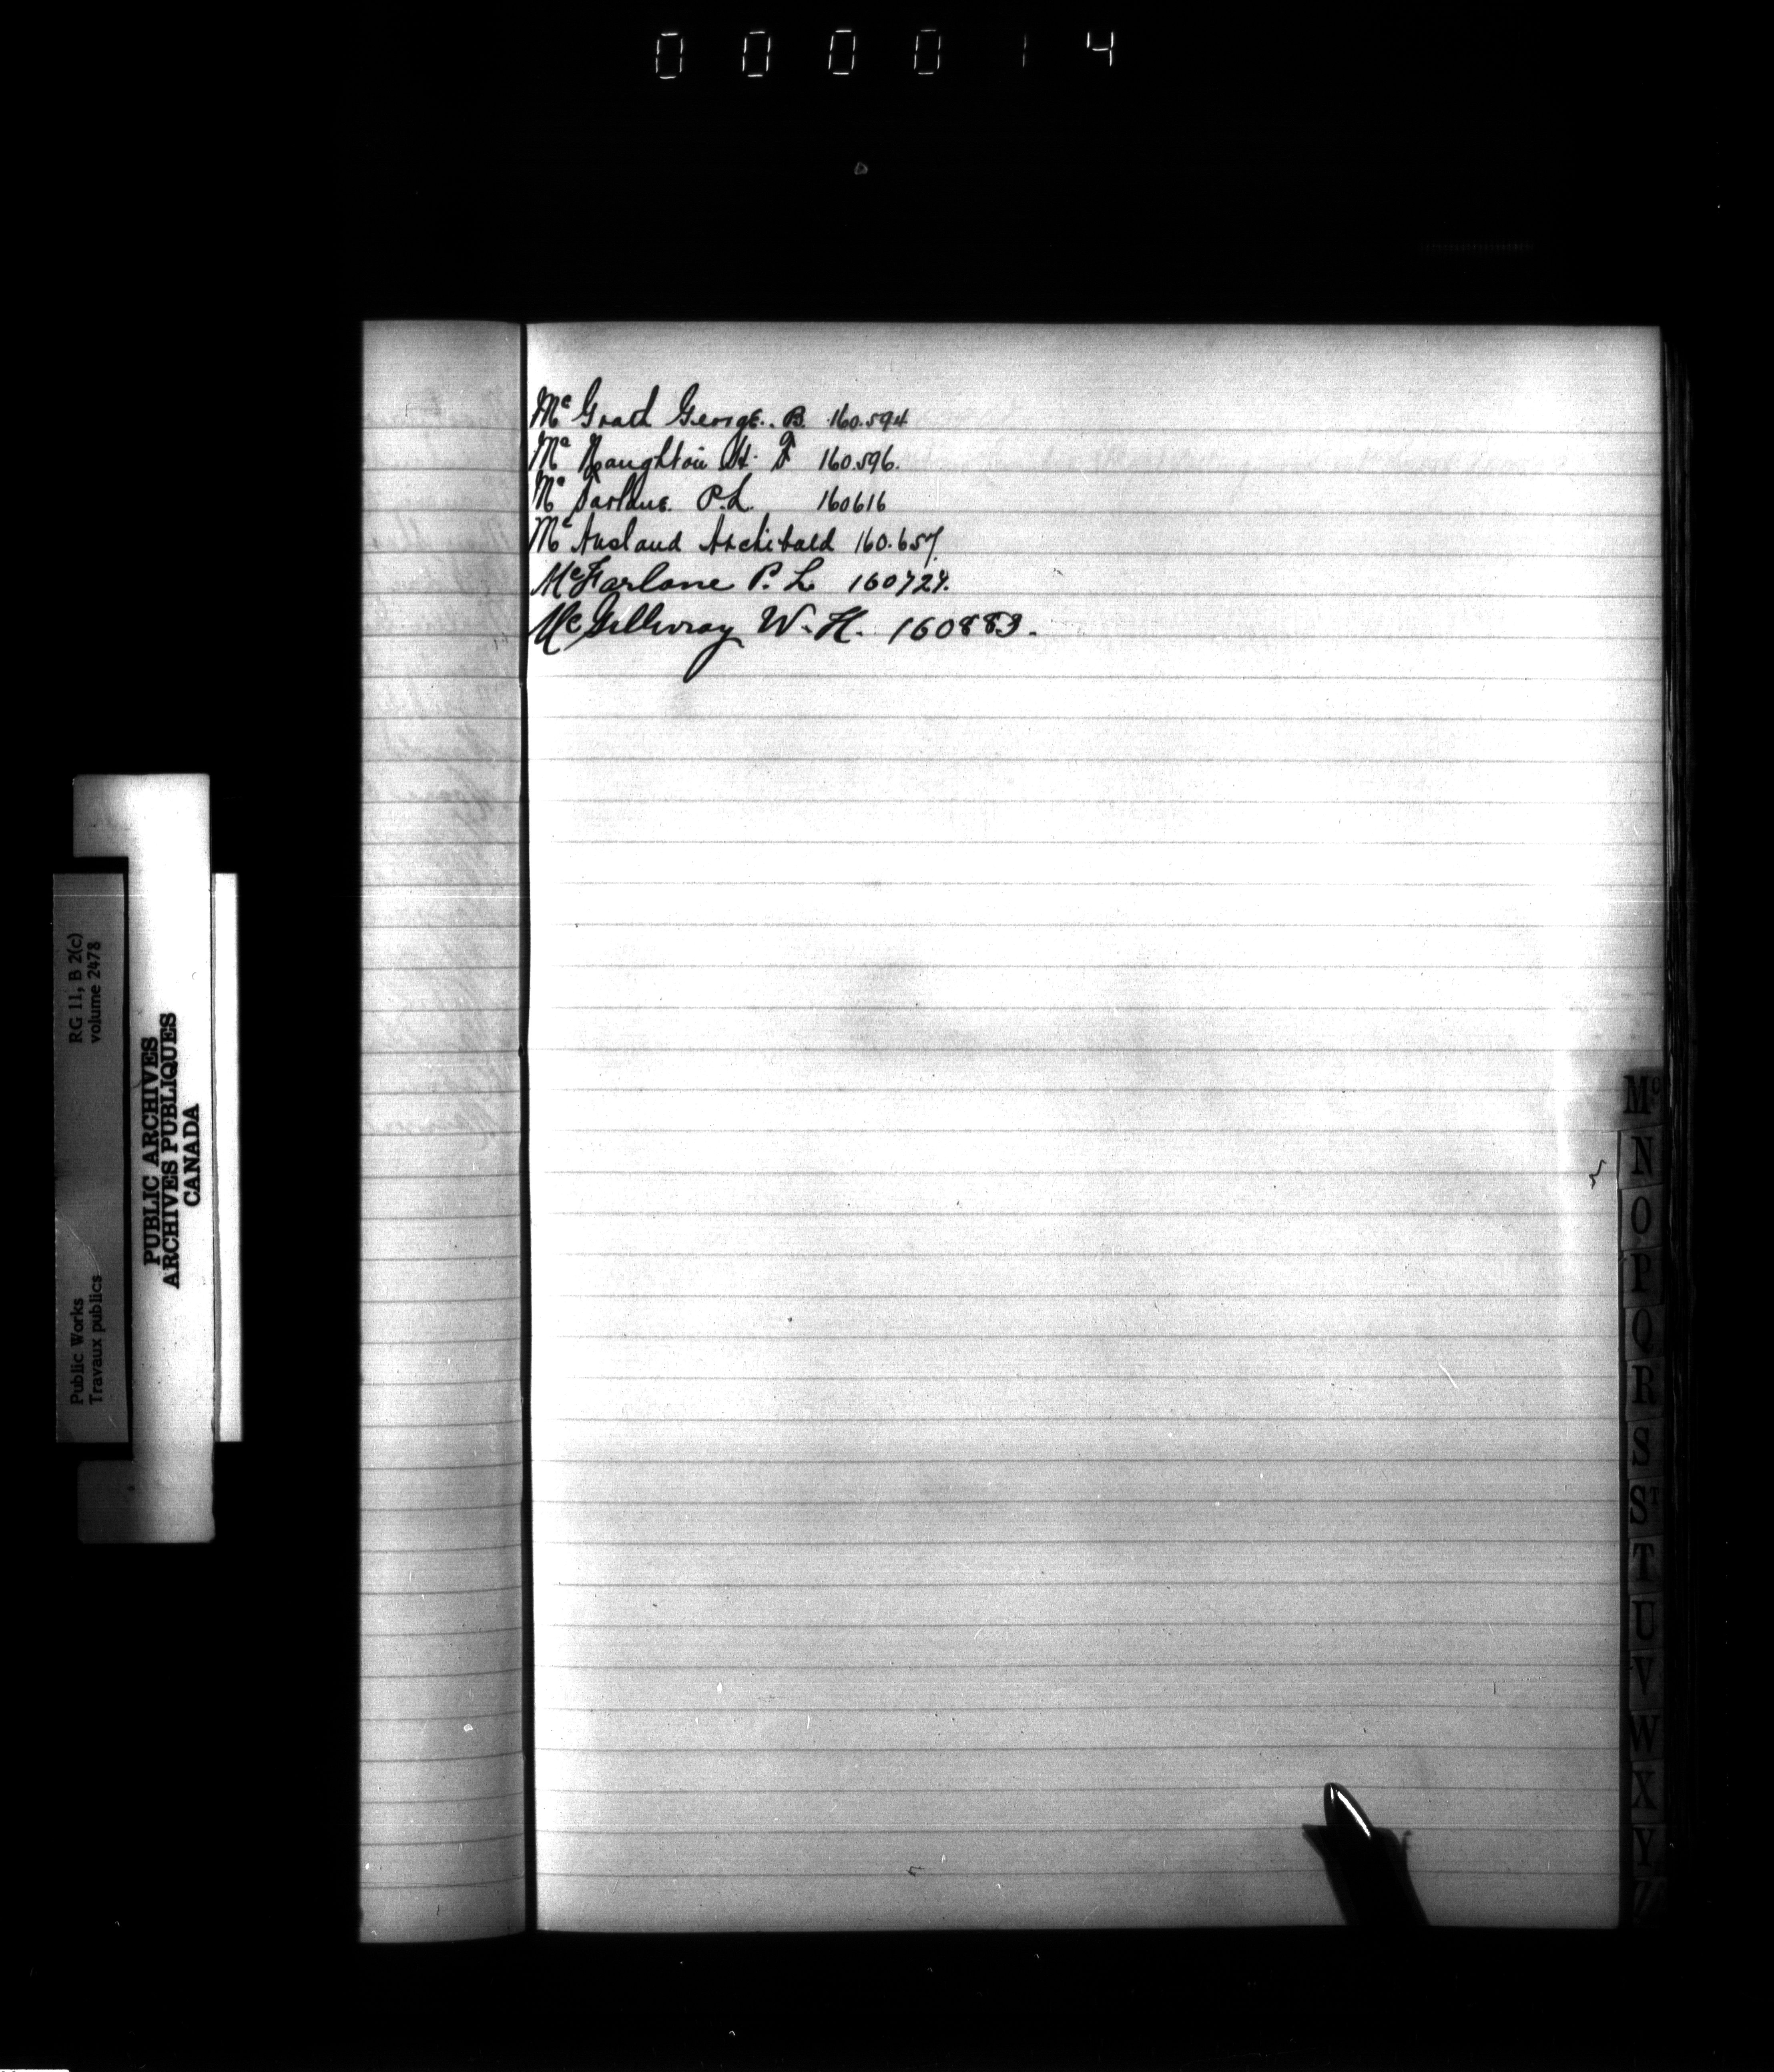 000014
Mc Grath George. B. 160.594
Mc Naughton H. F 160.596.
Mc Farlane. P.L. 160616
Mc Ausland Archibald 160.657.
McFarlane P. L 160727.
McGillivray W. H. 160883.
RG 11, B 2(c)
volume 2478
Public Works
Travaux publics
PUBLIC ARCHIVES
ARCHIVES PUBLIQUES
CANADA
Mc
N
O
P
Q
R
S
ST
T
U
V
W
X
Y
Z